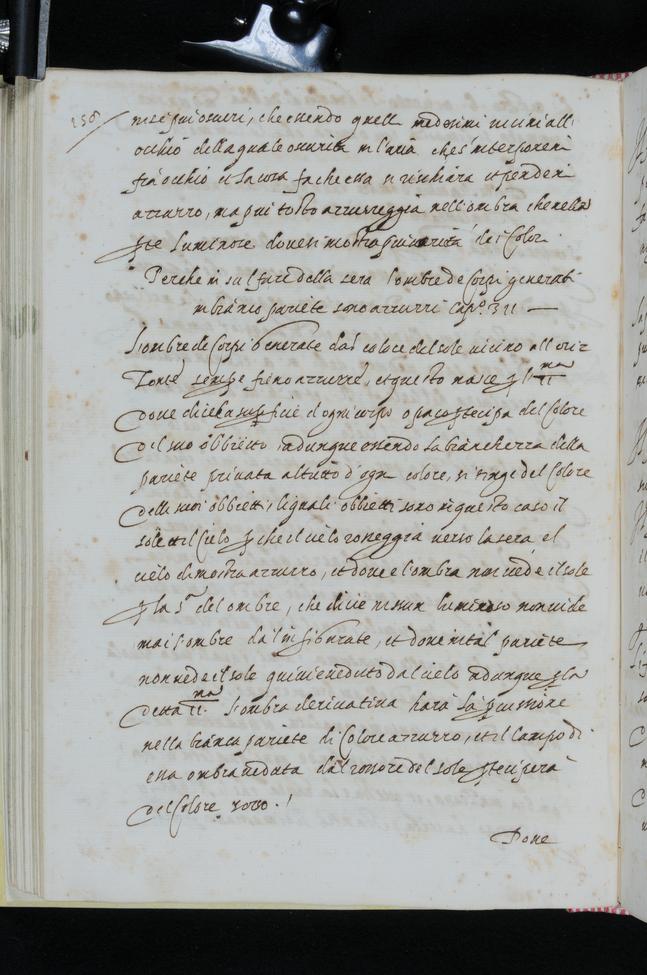 258
in se piu oscuri, che essendo quelli medesimi vicini all
occhio della quale oscurità in l'aria che s'interpone in
fra ochio et la cosa fa che essa si rischiara et pende in
azzurro, ma piu tosto azzureggia nell'ombra che nella
pte luminosa dove si mostra piu varità de i Colori
Perche in sul fare della sera l'ombre de Corpi generati
in bianco pariete sono azzurri Capo. 311
L'ombre de Corpi generate dal colore del sole vicino all oriz
zonte sempre fieno azzurre, et questo nasce p l' 11ma
dove dice la supficie d'ogni corpo opaco ptecipa del Colore
del suo obbietto, adunque essendo la bianchezza della
pariete privata al tutto d'ogni colore, si tinge del Colore
delli suoi obbietti, li quali obbietti sono in questo caso il
sole et il Cielo p che il cielo rosseggia verso la sera, el
cielo dimostra azzurro, et dove l'ombra non vede il sole
p la 5a del ombre, che dicie nissun luminoso non vide
mai l'ombre da l'in figurate, et dove in tal pariete
non vede il sole quivi è veduto dal cielo adunque p la
detta 11ma l'ombra derivativa harà la pcussione
nella bianca pariete di Colore azzurro, et il campo di
essa ombra veduta dal rossore del sole ptecipera
del Colore rosso.
Dove